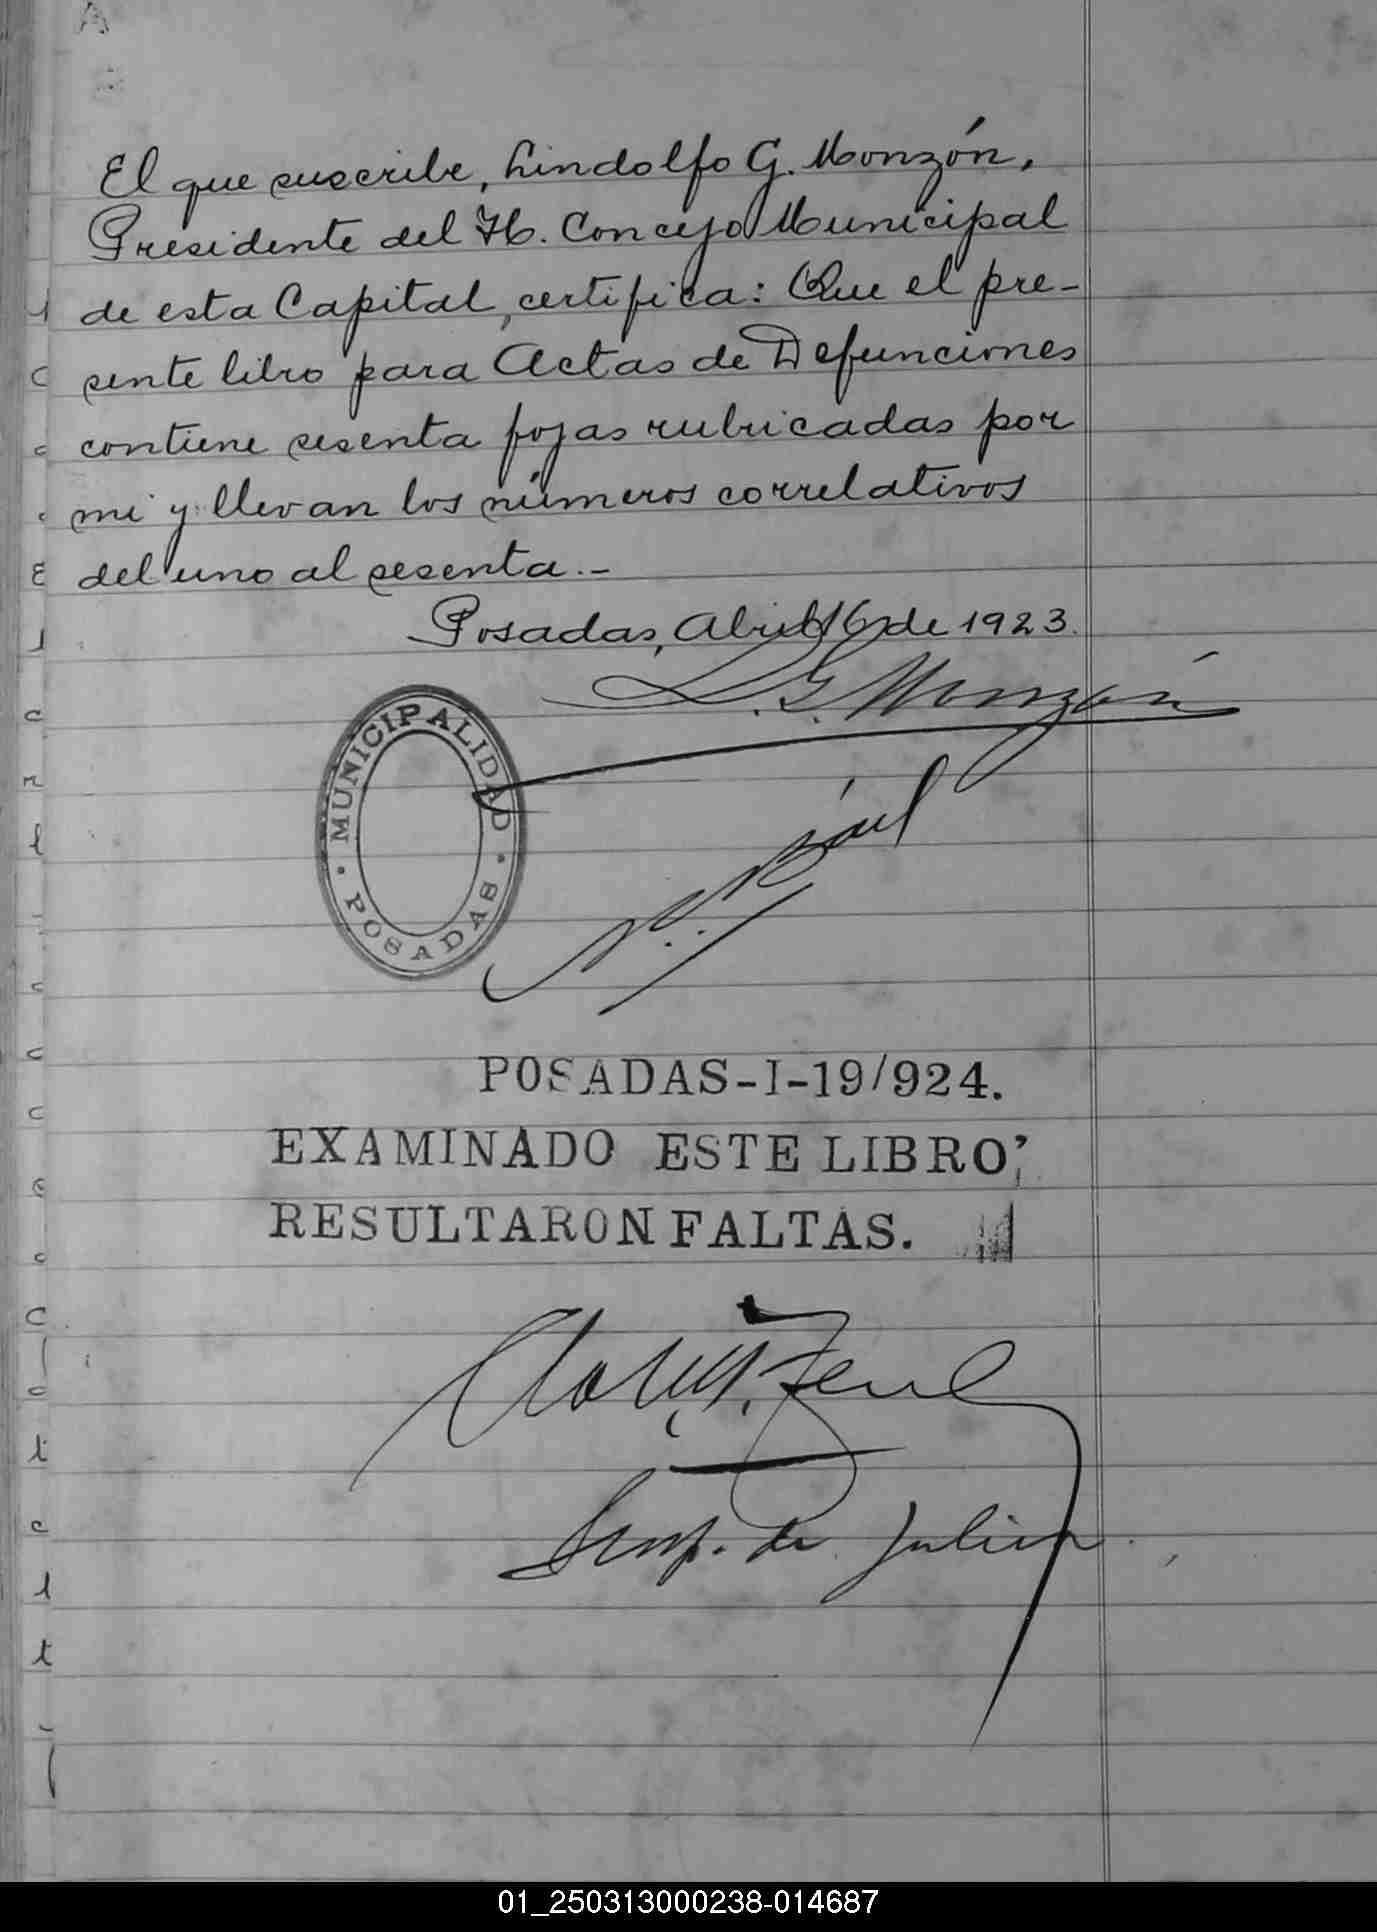 El que suscribe, Lindolfo G. Monzón,
Presidente del H. Concejo Municipal
de esta Capital, certifica: Que el pre-
sente libro para Actas de Defunciones
contiene sesenta fojas rubricadas por
mi y llevan los números correlativos
del uno al sesenta.-
Posadas, Abril 16 de 1923.
L. G. Monzón
MUNICIPALIDAD
POSADAS
POSADAS-I-19/924.
EXAMINADO ESTE LIBRO,
RESULTARON FALTAS.
Insp. de
01_250313000238-014687